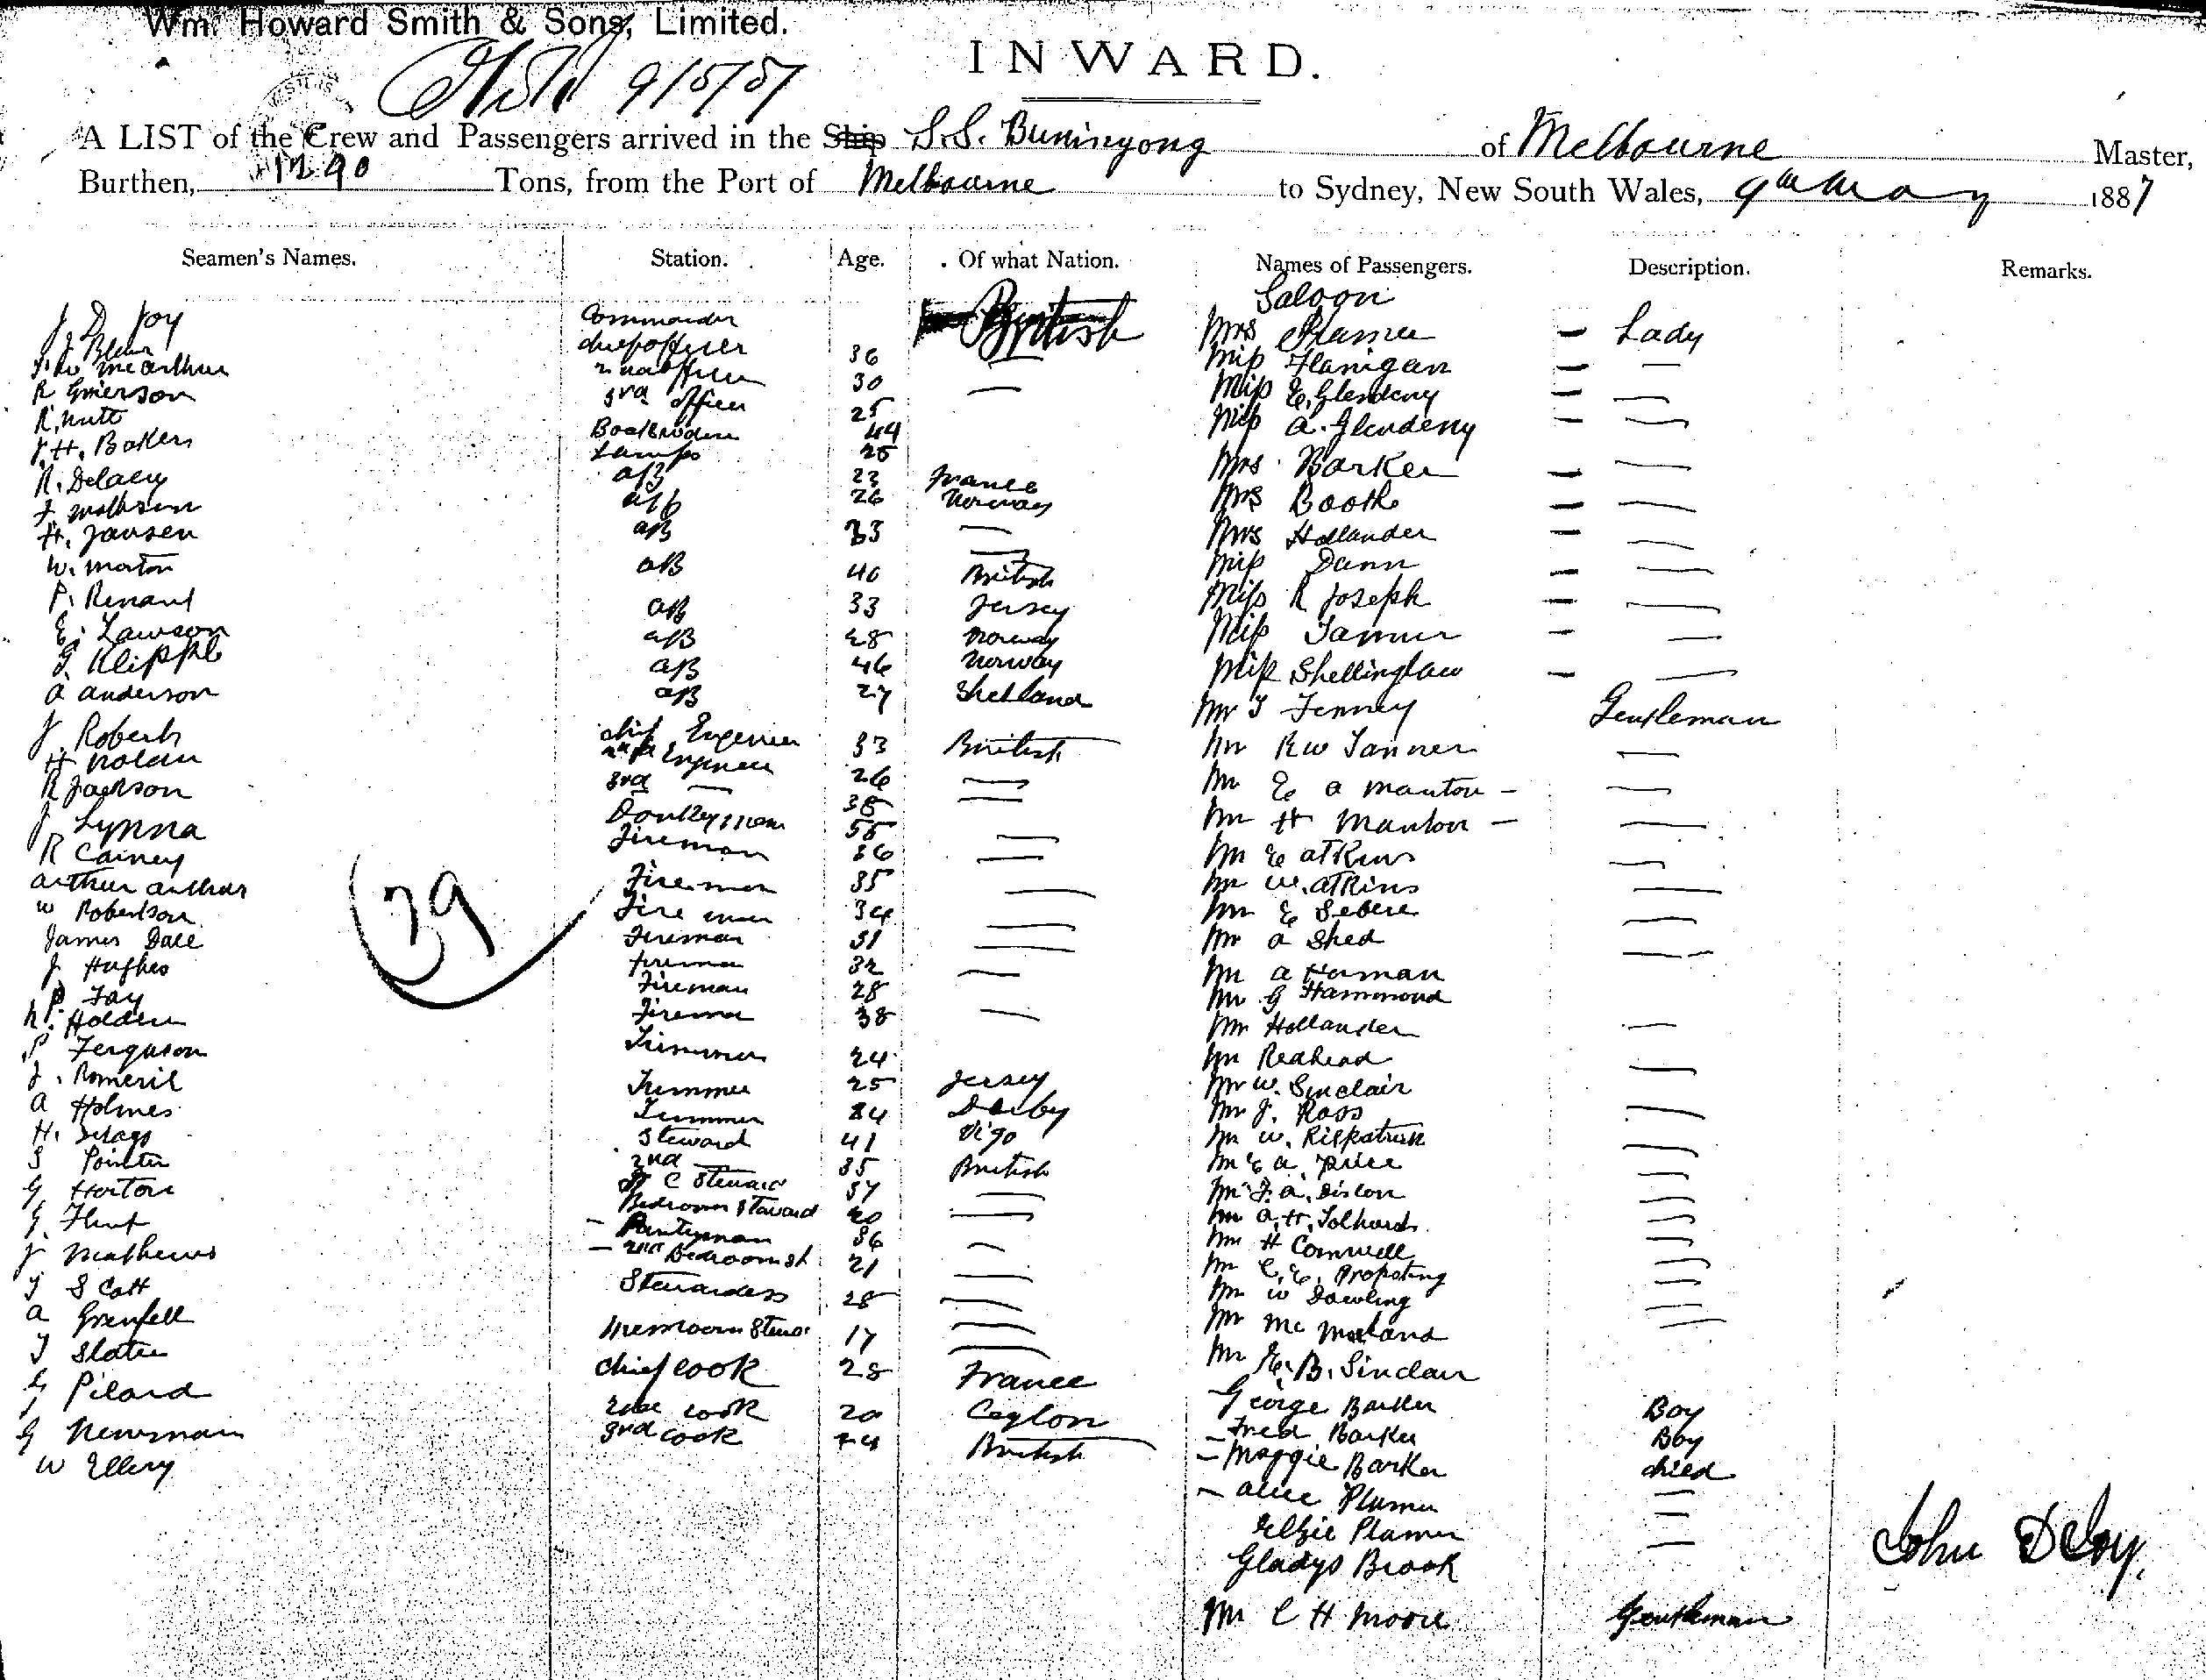 Wm. Howard Smith & Sons, Limited.
INWARD.
9/5/87
A LIST of the Crew and Passengers arrived in the Ship S.S. Buninyong of Melbourne Master,
Burthen, 1290 Tons, from the Port of Melbourne to Sydney, New South Wales, 9th May 1887
Seamen's Names. Station. Age. Of what Nation. Names of Passengers. Description. Remarks.
Saloon
J. D. Joy Commander British Mrs Lady
chief officer 36 Miss Flanigan —
McArthur 2nd officer 30 — Miss E. Glendeny —
R Emerson 3rd officer 25 Miss A. Glendeny —
R. Nutt 44 Mrs Barker —
J. H. Bakers Lamps 25 Mrs Booth —
R. Delaey AB 23 France Mrs Hollander —
AB 26 Norway Miss Dann —
H. Jansen AB 33 — Miss R Joseph —
W. Morton AB 40 British Miss Tanner —
P. Renaut AB 33 Jersey Miss Shellinglaw —
E. Lawson AB 28 Norway Mr T Fenney Gentleman
G. Klippel AB 46 Norway Mr R W Tanner —
A Anderson AB 27 Shetland Mr E A Manton —
J. Roberts Chief Engineer 33 British Mr H Manton —
H Nolan 2nd Engineer 26 — Mr E Atkins —
R Jackson 3rd — 38 — Mr W. Atkins —
J Lynna Donkeyman 55 — Mr E Sebire —
R Cainey Fireman 36 — Mr A Shed —
Arthur Arthur Fireman 35 — Mr A Harman
W Robertson Fireman 34 — Mr G Hammond
James Dale Fireman 31 — Mr Hollander —
J Hughes Fireman 32 — Mr Redhead —
P. Fay Fireman 28 Mr W. Sinclair
Holden Fireman 38 — Mr J. Ross —
Ferguson Trimmer 24 Mr W. Kilpatrick —
J. Romeril Trimmer 25 Jersey Mr E A. Price —
A Holmes Trimmer 24 Derby Mr F. A. —
H. Steward 41 Vigo Mr A. H. —
S Pointer 2nd — 35 British Mr H Cornwell —
G Horton Steward 37 — Mr C. E. Propsting —
G. Flint Bedroom Steward 20 — Mr W Dowling —
J Mathews Pantryman 36 — Mr —
T Scott 2nd Bedroom St 21 — Mr E. B. Sinclair
A Grenfell Stewardess 28 — George Barker Boy
T Slater Messroom Stewd 17 — Fred Barker Boy
G Pilard Chief Cook 28 France Maggie Barker child
G Newman 2nd Cook 20 Ceylon Alice —
W Ellery 3rd Cook British Elsie —
Gladys Brook —
Mr C H Moore Gentleman
39
John D Joy.